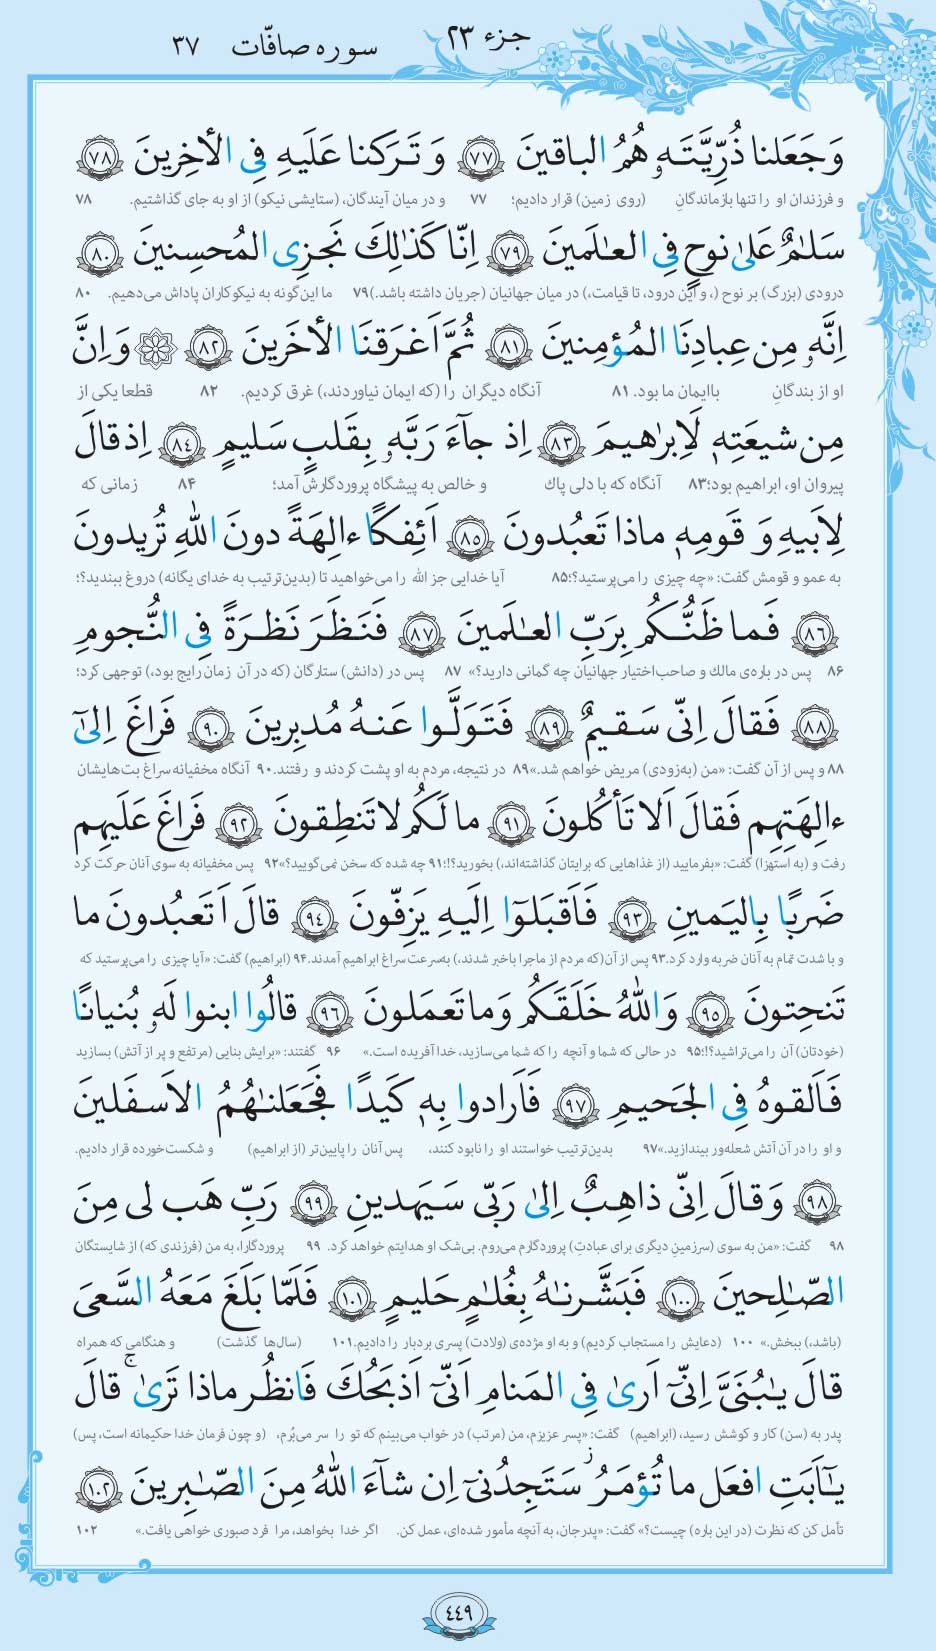 جزء ۲۳
سوره صافّات ۳۷
وَ جَعَلنا ذُرِّيَّتَهٗ هُمُ الباقينَ ﴿٧٧﴾ وَ تَرَكنا عَلَيهِ فِى الأخِرينَ ﴿٧٨﴾
و فرزندان او را تنها بازماندگانِ (روی زمین) قرار دادیم؛ ۷۷ و در میان آیندگان، (ستایشی نیکو) از او به جای گذاشتیم. ۷۸
سَلٰمٌ عَلىٰ نوحٍ فِى العٰلَمينَ ﴿٧٩﴾ اِنّا كَذٰلِكَ نَجزِى المُحسِنينَ ﴿٨٠﴾
درودی (بزرگ) بر نوح (، و این درود، تا قیامت،) در میان جهانیان (جریان داشته باشد.) ۷۹ ما این‌گونه به نیکوکاران پاداش می‌دهیم. ۸۰
اِنَّهٗ مِن عِبادِنَا المُؤمِنينَ ﴿٨١﴾ ثُمَّ اَغرَقنَا الأخَرينَ ﴿٨٢﴾ ۞ وَ اِنَّ
او از بندگانِ باایمان ما بود. ۸۱ آنگاه دیگران را (که ایمان نیاوردند،) غرق کردیم. ۸۲ قطعا یکی از
مِن شيعَتِهٖ لَاِبرٰهيمَ ﴿٨٣﴾ اِذ جآءَ رَبَّهٗ بِقَلبٍ سَليمٍ ﴿٨٤﴾ اِذ قالَ
پیروان او، ابراهیم بود؛ ۸۳ آنگاه که با دلی پاك و خالص به پیشگاه پروردگارش آمد؛ ۸۴ زمانی که
لِاَبيهِ وَ قَومِهٖ ماذا تَعبُدونَ ﴿٨٥﴾ اَئِفكًا ءالِهَةً دونَ اللهِ تُريدونَ
به عمو و قومش گفت: «چه چیزی را می‌پرستید؟؛ ۸۵ آیا خدایی جز الله را می‌خواهید تا (بدین‌ترتیب به خدای یگانه) دروغ ببندید؟؛
﴿٨٦﴾ فَما ظَنُّكُم بِرَبِّ العٰلَمينَ ﴿٨٧﴾ فَنَظَرَ نَظرَةً فِى النُّجومِ
۸۶ پس در باره‌ی مالك و صاحب‌اختیار جهانیان چه گمانی دارید؟» ۸۷ پس در (دانش) ستارگان (که در آن زمان رایج بود،) توجهی کرد؛
﴿٨٨﴾ فَقالَ اِنّى سَقيمٌ ﴿٨٩﴾ فَتَوَلَّوا عَنهُ مُدبِرينَ ﴿٩٠﴾ فَراغَ اِلىٰٓ
۸۸ و پس از آن گفت: «من (به‌زودی) مریض خواهم شد.» ۸۹ در نتیجه، مردم به او پشت کردند و رفتند. ۹۰ آنگاه مخفیانه سراغ بت‌هایشان
ءالِهَتِهِم فَقالَ اَلا تَأكُلونَ ﴿٩١﴾ ما لَكُم لا تَنطِقونَ ﴿٩٢﴾ فَراغَ عَلَيهِم
رفت و (به استهزا) گفت: «بفرمایید (از غذاهایی که برایتان گذاشته‌اند،) بخورید؟!؛ ۹۱ چه شده که سخن نمی‌گویید؟» ۹۲ پس مخفیانه به سوی آنان حرکت کرد
ضَربًا بِاليَمينِ ﴿٩٣﴾ فَاَقبَلوٓا اِلَيهِ يَزِفّونَ ﴿٩٤﴾ قالَ اَتَعبُدونَ ما
و با شدت تمام به آنان ضربه وارد کرد. ۹۳ پس از آن (که مردم از ماجرا باخبر شدند،) به‌سرعت سراغ ابراهیم آمدند. ۹۴ (ابراهیم) گفت: «آیا چیزی را می‌پرستید که
تَنحِتونَ ﴿٩٥﴾ وَ اللهُ خَلَقَكُم وَ ما تَعمَلونَ ﴿٩٦﴾ قالُوا ابنوا لَهٗ بُنيانًا
(خودتان) آن را می‌تراشید؟!؛ ۹۵ در حالی که شما و آنچه را که شما می‌سازید، خدا آفریده است.» ۹۶ گفتند: «برایش بنایی (مرتفع و پر از آتش) بسازید
فَاَلقوهُ فِى الجَحيمِ ﴿٩٧﴾ فَاَرادوا بِهٖ كَيدًا فَجَعَلنٰهُمُ الاَسفَلينَ
و او را در آن آتش شعله‌ور بیندازید.» ۹۷ بدین‌ترتیب خواستند او را نابود کنند، پس آنان را پایین‌تر (از ابراهیم) و شکست‌خورده قرار دادیم.
﴿٩٨﴾ وَ قالَ اِنّى ذاهِبٌ اِلىٰ رَبّى سَيَهدينِ ﴿٩٩﴾ رَبِّ هَب لى مِنَ
۹۸ گفت: «من به سوی (سرزمین دیگری برای عبادتِ) پروردگارم می‌روم. بی‌شک او هدایتم خواهد کرد. ۹۹ پروردگارا، به من (فرزندی که) از شایستگان
الصّٰلِحينَ ﴿١٠٠﴾ فَبَشَّرنٰهُ بِغُلٰمٍ حَليمٍ ﴿١٠١﴾ فَلَمّا بَلَغَ مَعَهُ السَّعىَ
(باشد،) ببخش.» ۱۰۰ (دعایش را مستجاب کردیم) و به او مژده‌ی (ولادت) پسری بردبار را دادیم. ۱۰۱ (سال‌ها گذشت) و هنگامی که همراه
قالَ يٰبُنَىَّ اِنّىٓ اَرىٰ فِى المَنامِ اَنّىٓ اَذبَحُكَ فَانظُر ماذا تَرىٰۚ قالَ
پدر به (سن) کار و کوشش رسید، (ابراهیم) گفت: «پسر عزیزم، من (مرتب) در خواب می‌بینم که تو را سر می‌بُرم، (و چون فرمان خدا حکیمانه است، پس)
يٰٓاَبَتِ افعَل ما تُؤمَرُ ز سَتَجِدُنىٓ اِن شآءَ اللهُ مِنَ الصّٰبِرينَ ﴿١٠٢﴾
تأمل کن که نظرت (در این باره) چیست؟» گفت: «پدرجان، به آنچه مأمور شده‌ای، عمل کن. اگر خدا بخواهد، مرا فرد صبوری خواهی یافت.» ۱۰۲
٤٤٩